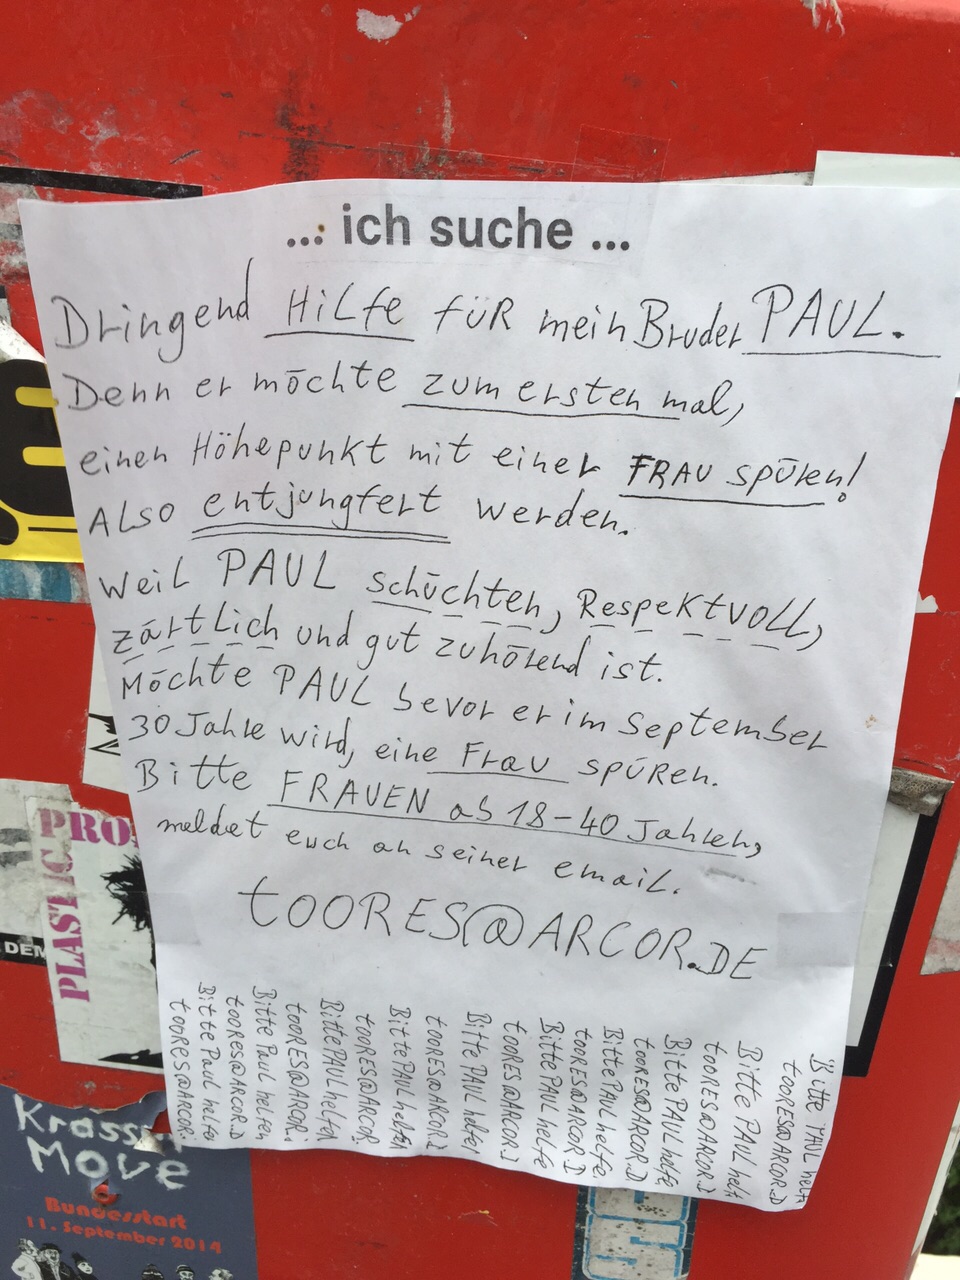 ... ich suche ...
Dringend HiLfe füR mein Bruder PAUL.
Denn er möchte zum ersten mal,
einen Höhepunkt mit einer FRAU spüren!
ALso entjungfert werden.
weiL PAUL schüchten, Respektvoll,
zärtLich und gut zuhörend ist.
Möchte PAUL bevor er im september
30 Jahre wird, eine Frau spüren.
Bitte FRAUEN ab 18-40 Jahren,
meldet euch an seiner email.
tOORES@ARCOR.DE
Bitte Paul helfe
tOORES@ARCOR.
Bitte Paul helfen
tOORES@ARCOR.D
Bitte PAUL helfen
tOORES@ARCOR.
Bitte PAUL helfen
tOORES@ARCOR.
Bitte PAUL helfen
tOORES@ARCOR.D
Bitte PAUL helfe
tOORES@ARCOR.D
Bitte PAUL helfe.
tOORES@ARCOR.D
Bitte PAUL helfe
tOORES@ARCOR.D
Bitte PAUL helf
tOORES@ARCOR.D
Bitte PAUL helf
tOORES@ARCOR.D
PRO
PLASTIC
DEM
Krasse
Move
Bundesstart
11. September 2014